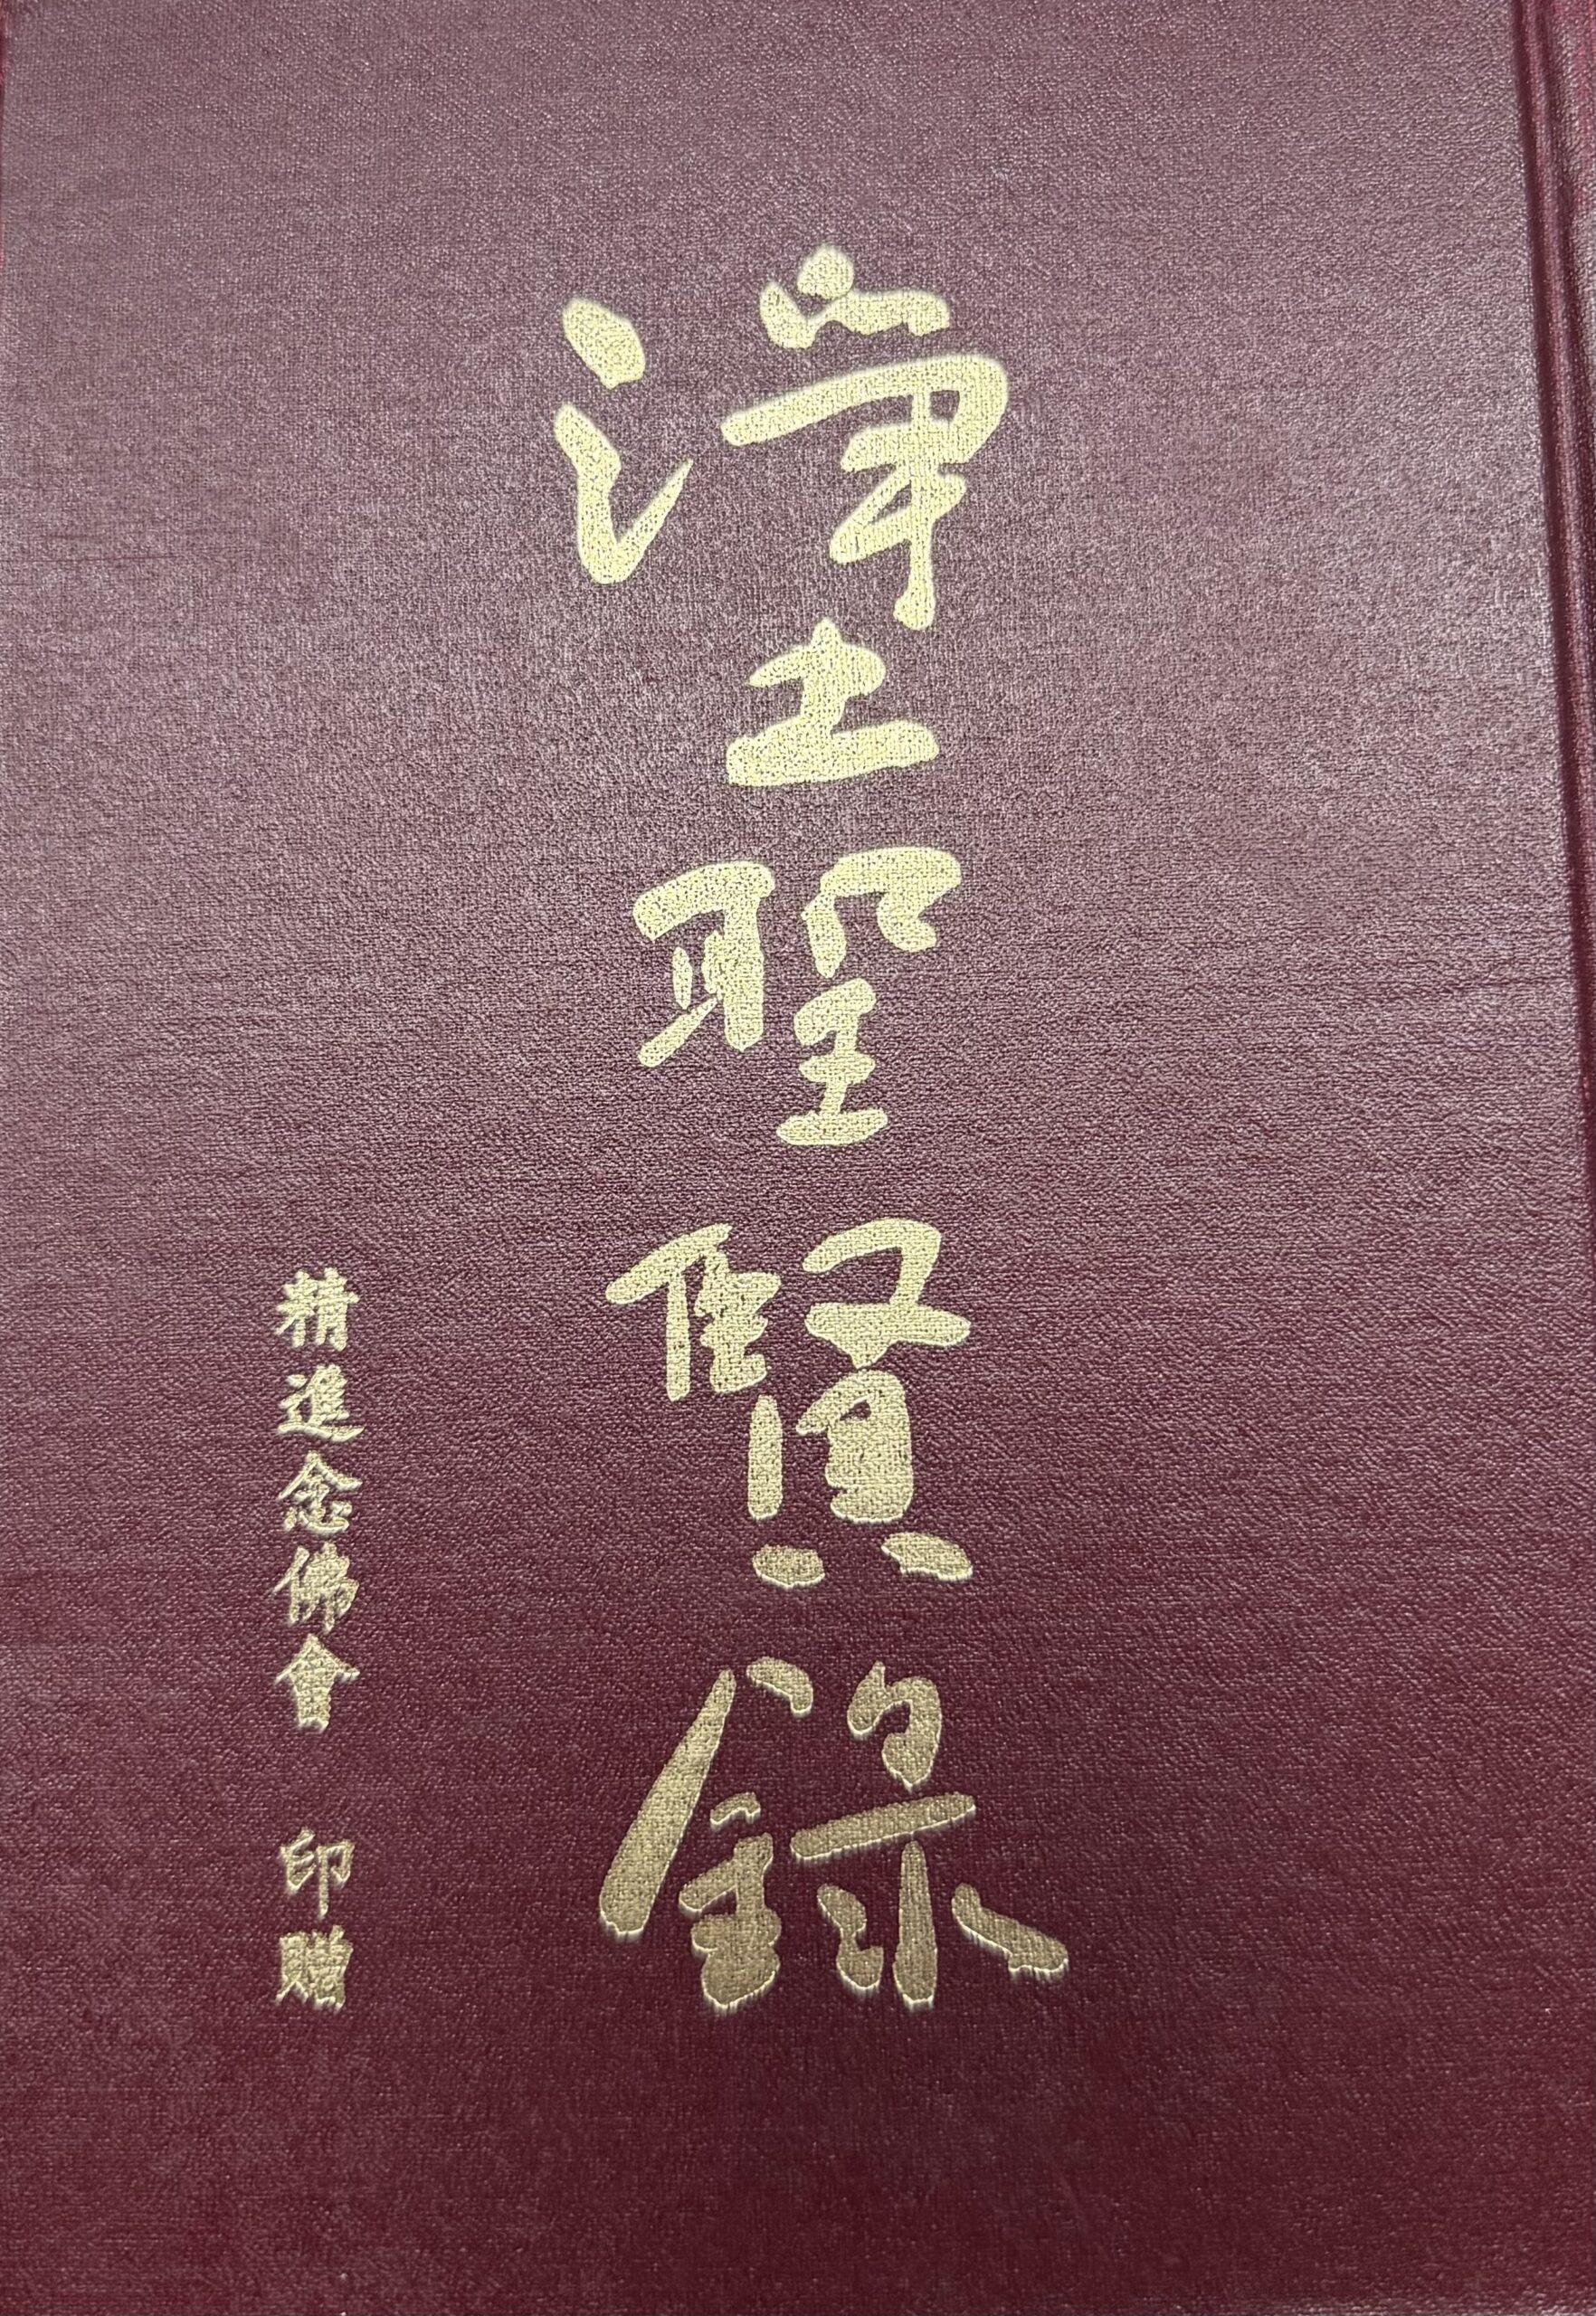 淨土聖賢錄
精進念佛會 印贈